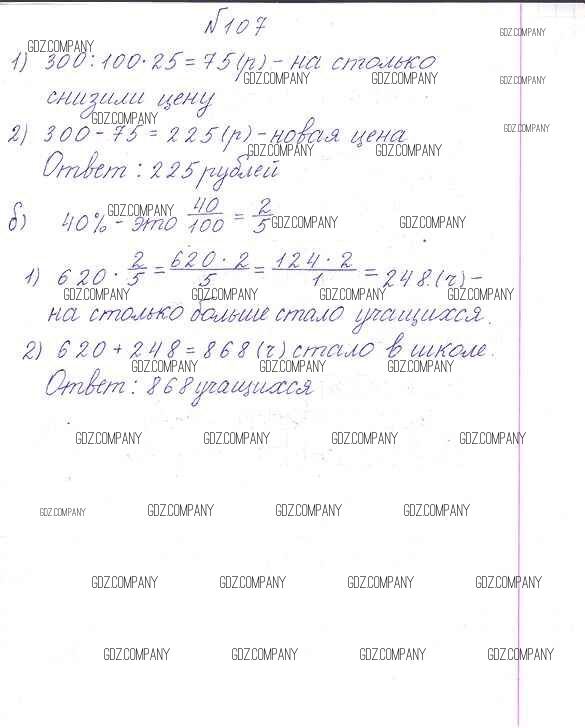 №107
1) 300 : 100 · 25 = 75 (р) – на столько
снизили цену
2) 300 – 75 = 225 (р) – новая цена
Ответ : 225 рублей
б) 40% – это 40/100 = 2/5
1) 620 · 2/5 = 620 · 2/5 = 124 · 2/1 = 248 (ч) –
на столько больше стало учащихся.
2) 620 + 248 = 868 (ч) стало в школе.
Ответ : 868 учащихся
GDZ.COMPANY GDZ.COMPANY
GDZ.COMPANY GDZ.COMPANY GDZ.COMPANY
GDZ.COMPANY GDZ.COMPANY
GDZ.COMPANY GDZ.COMPANY
GDZ.COMPANY GDZ.COMPANY GDZ.COMPANY
GDZ.COMPANY GDZ.COMPANY GDZ.COMPANY GDZ.COMPANY
GDZ.COMPANY GDZ.COMPANY GDZ.COMPANY
GDZ.COMPANY GDZ.COMPANY GDZ.COMPANY GDZ.COMPANY
GDZ.COMPANY GDZ.COMPANY GDZ.COMPANY GDZ.COMPANY
GDZ.COMPANY GDZ.COMPANY GDZ.COMPANY GDZ.COMPANY
GDZ.COMPANY GDZ.COMPANY GDZ.COMPANY GDZ.COMPANY